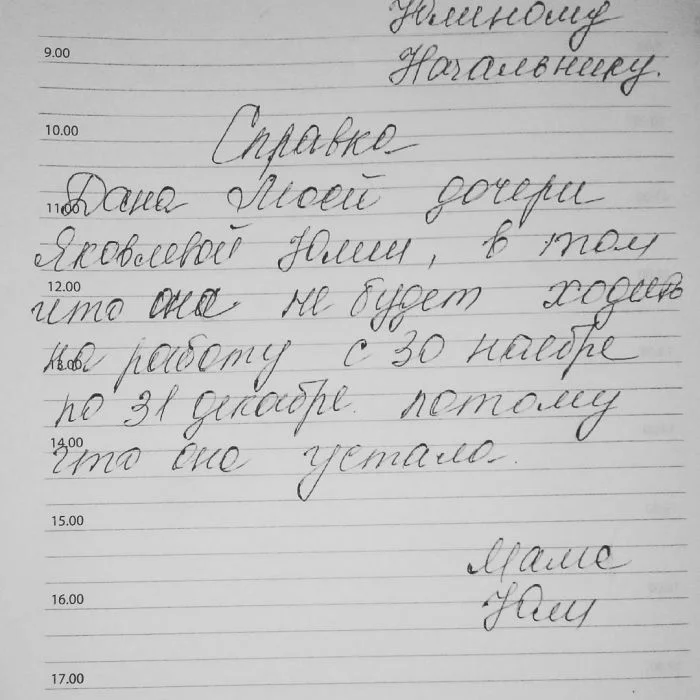 Юлиному
9.00 Начальнику.
10.00 Справка
11.00 Дана Моей дочери
Яковлевой Юлии, в том
12.00 что она не будет ходить
13.00 на работу с 30 наебре
по 31 декабре. потому
14.00 что она устала.
15.00
Мама
16.00 Юли
17.00